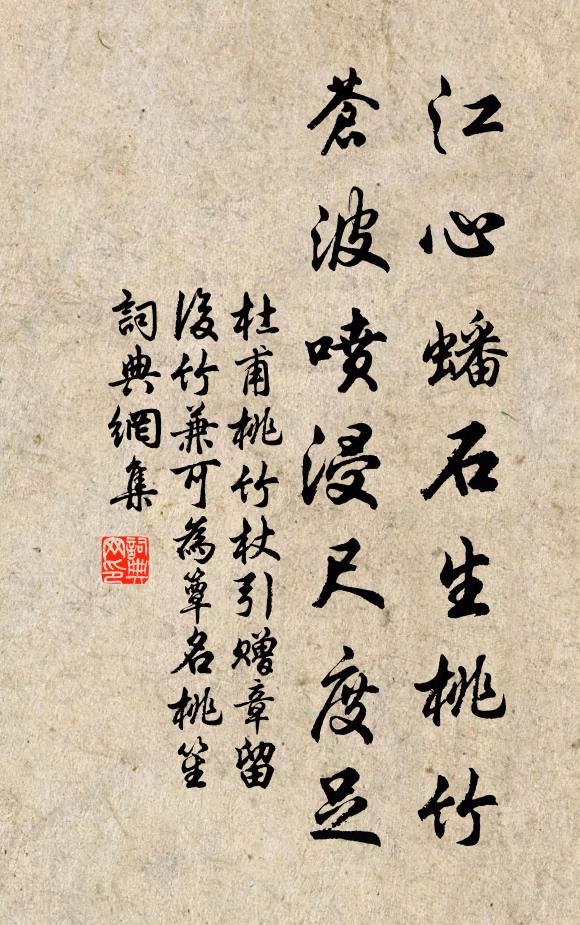 江心蟠石生桃竹
蒼波噴浸尺度足
杜甫桃竹杖引贈章留
後竹兼可為簟名桃笙
詞典網集
詞典网印